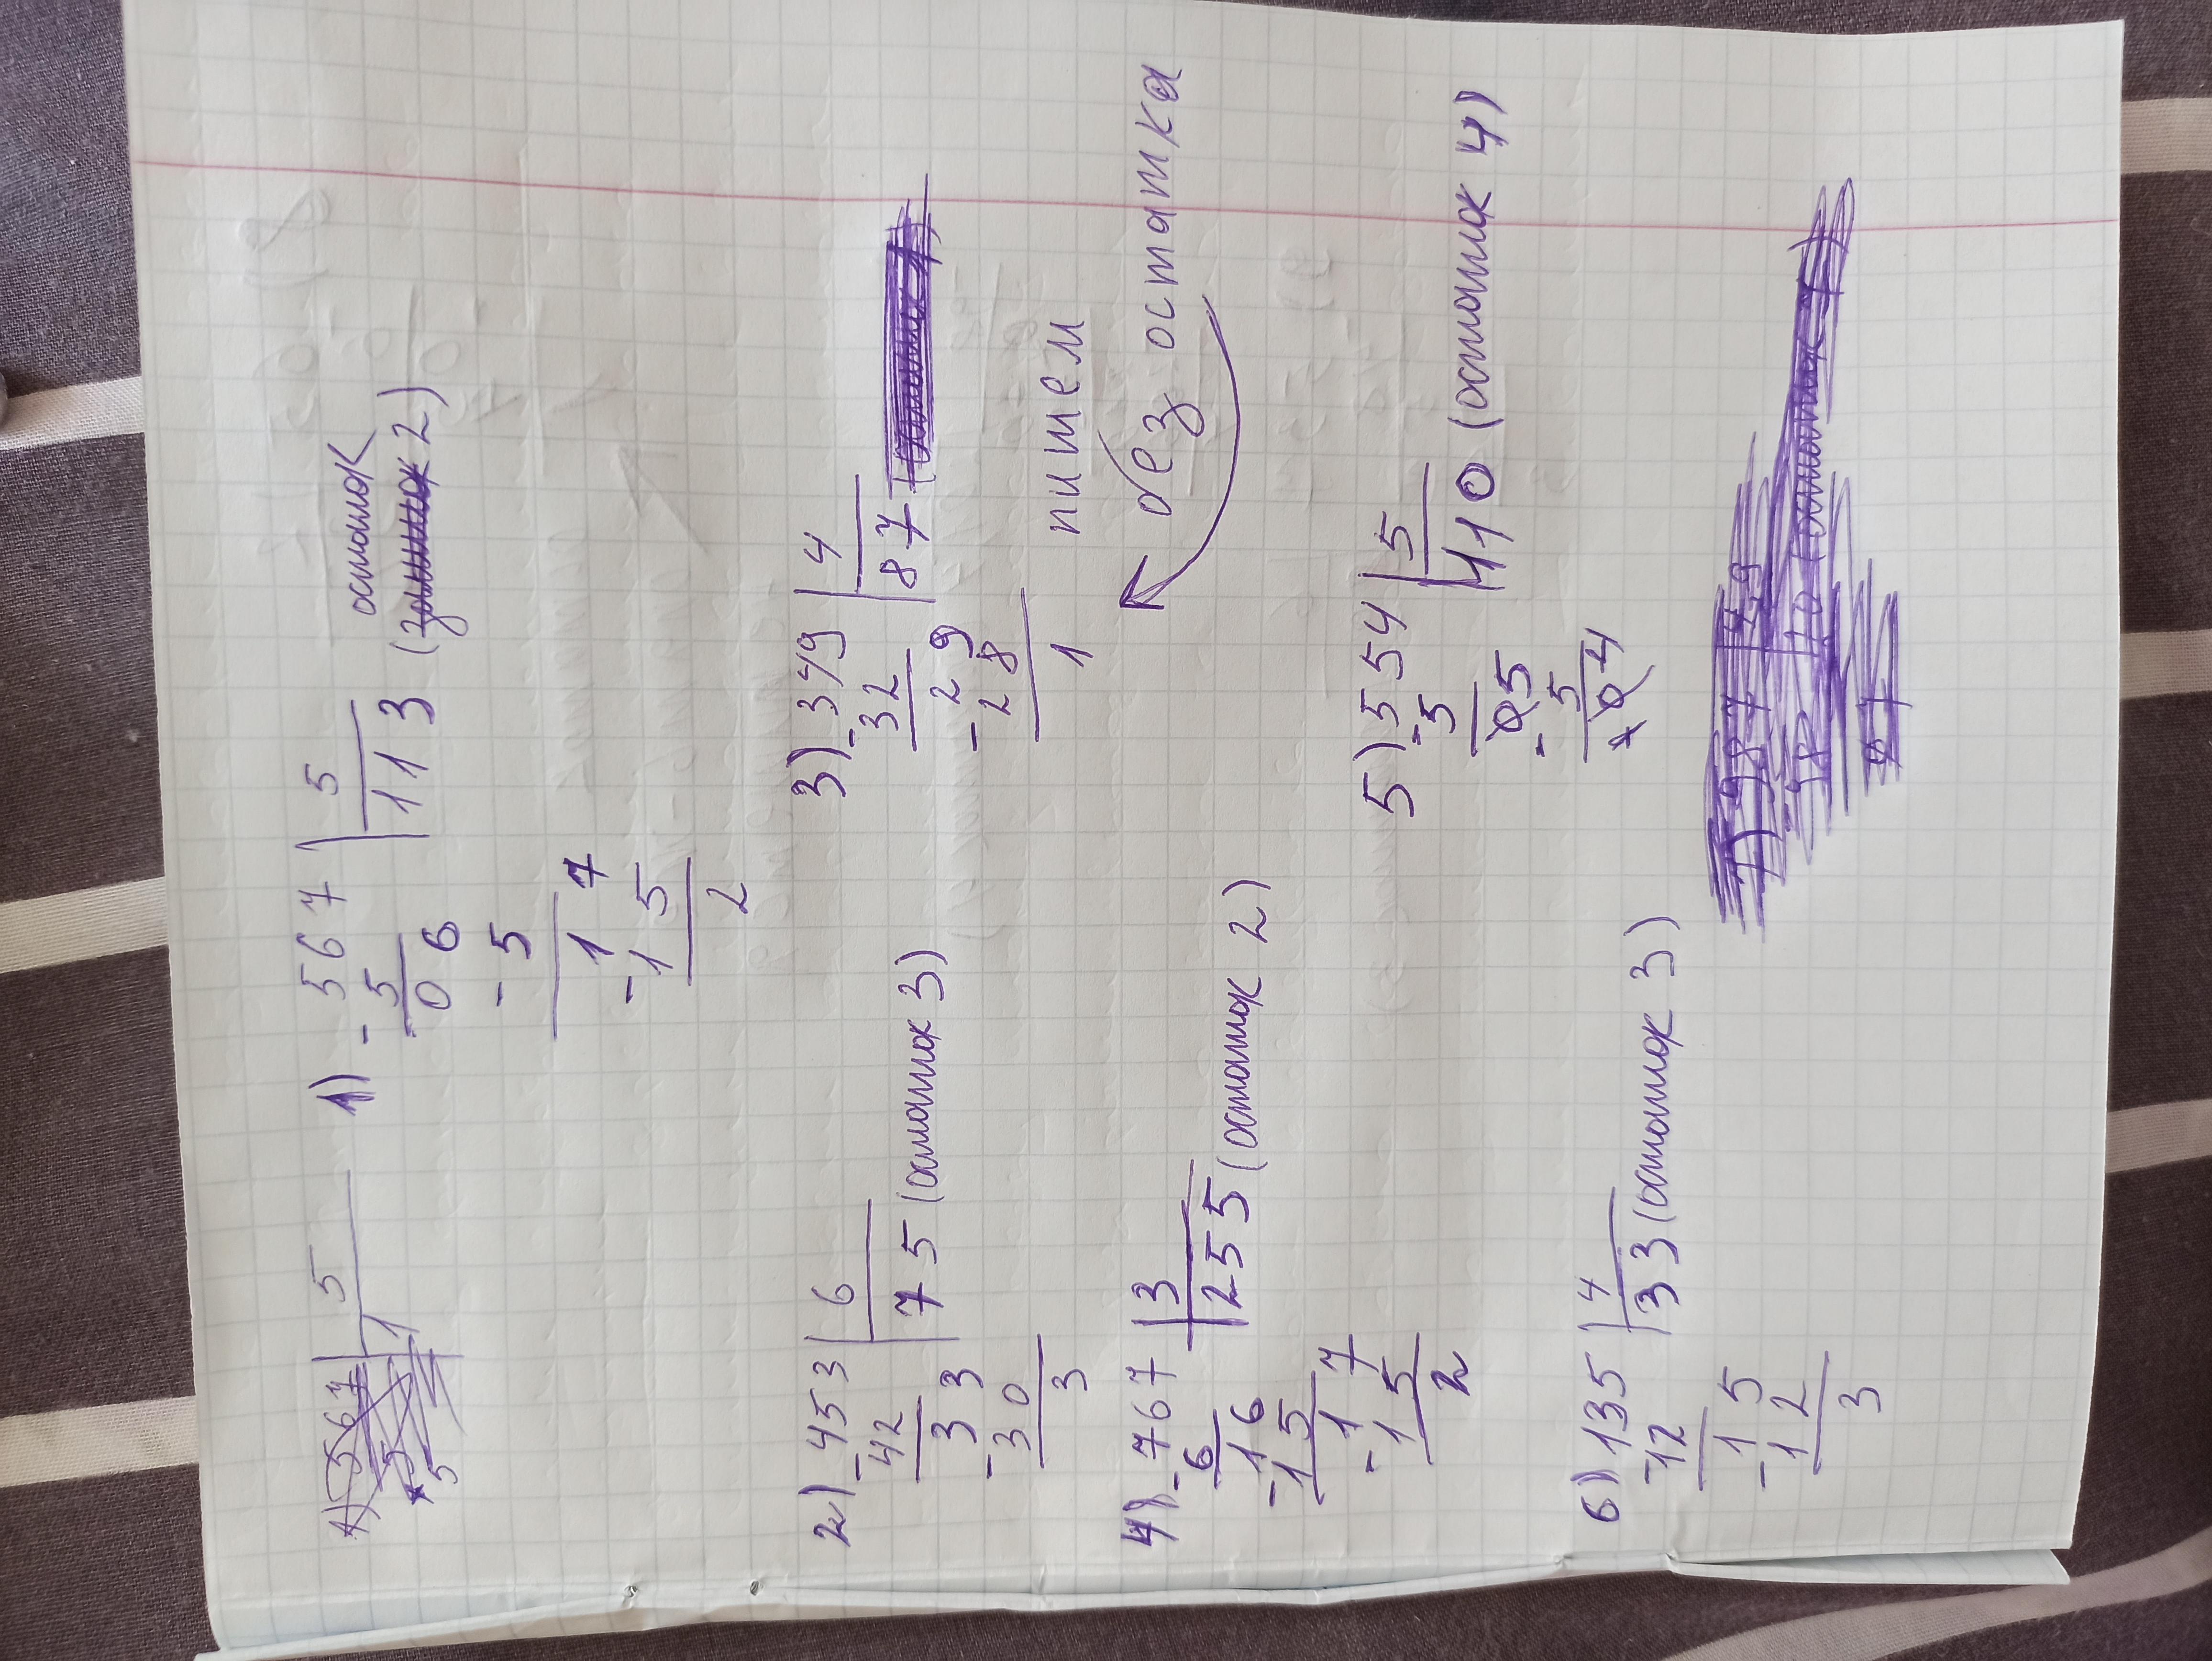 1) 567 | 5
- 5 | 1
5
1) - 567 | 5
5 | 113 ( 2)
остаток
0 6
- 5
1 7
- 1 5
2
2) - 453 | 6
42 | 75 (остаток 3)
3 3
- 3 0
3
3) - 349 | 4
32 | 87
- 2 9
2 8
1
пишем
без остатка
4) - 767 | 3
6 | 255 (остаток 2)
- 1 6
1 5
- 1 7
1 5
2
5) 554 | 5
- 5 | 110 (остаток 4)
05
- 5
04
6) 135 | 4
- 12 | 33 (остаток 3)
- 1 5
1 2
3